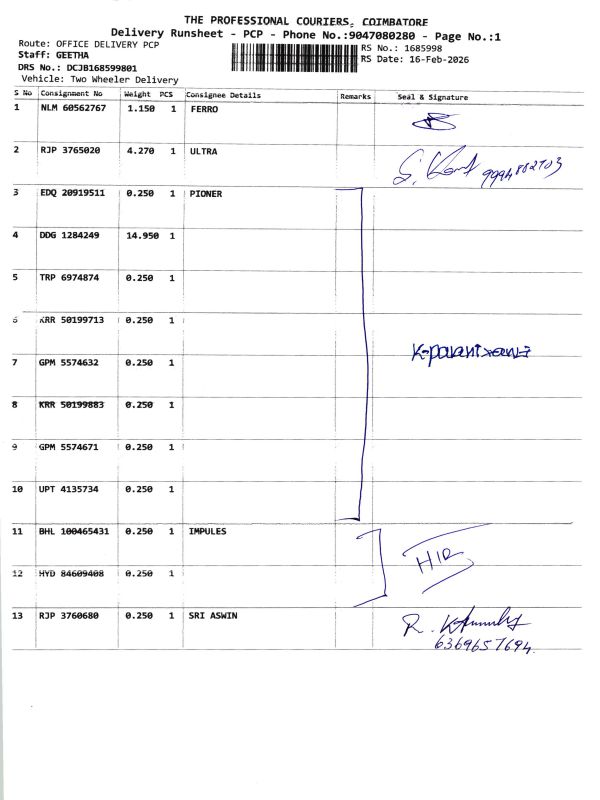 THE PROFESSIONAL COURIERS, COIMBATORE
Delivery Runsheet - PCP - Phone No.:9047080280 - Page No.:1
Route: OFFICE DELIVERY PCP
Staff: GEETHA
DRS No.: DCJB168599801
Vehicle: Two Wheeler Delivery
RS No.: 1685998
RS Date: 16-Feb-2026
S No Consignment No Weight PCS Consignee Details Remarks Seal & Signature
1 NLM 60562767 1.150 1 FERRO
2 RJP 3765020 4.270 1 ULTRA
3 EDQ 20919511 0.250 1 PIONER
4 DDG 1284249 14.950 1
5 TRP 6974874 0.250 1
6 KRR 50199713 0.250 1
7 GPM 5574632 0.250 1
8 KRR 50199883 0.250 1
9 GPM 5574671 0.250 1
10 UPT 4135734 0.250 1
11 BHL 100465431 0.250 1 IMPULES
12 HYD 84609408 0.250 1
13 RJP 3760680 0.250 1 SRI ASWIN
6369657694